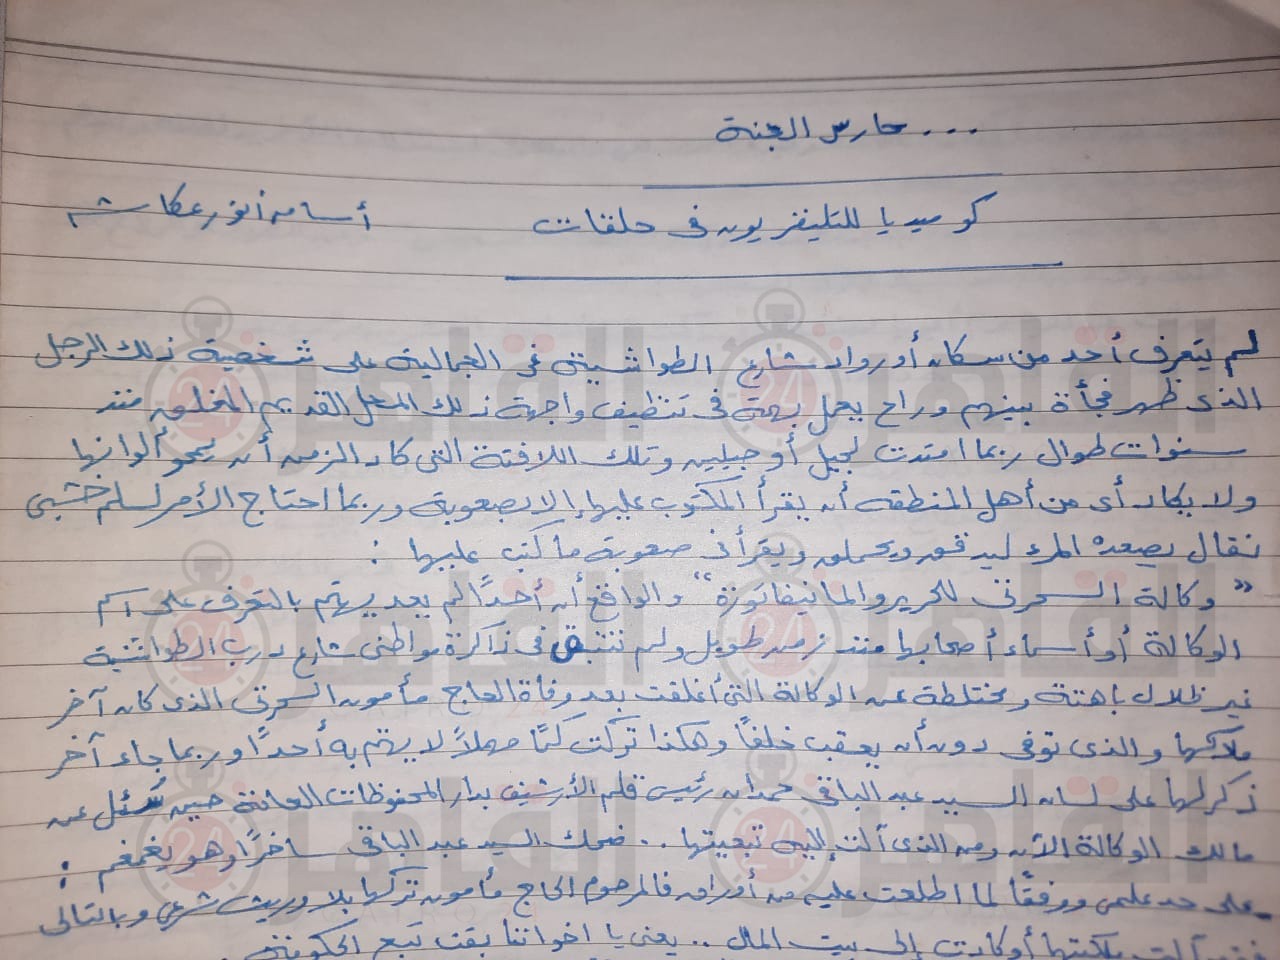 ... حارس الجنة
كوميديا للتليفزيون فى حلقات
أسامه أنور عكاشه
لم يتعرف أحد من سكان أو رواد شارع الطواشية فى الجمالية على شخصية ذلك الرجل
الذى ظهر فجأة بينهم وراح يعمل بهمة فى تنظيف واجهة ذلك المحل القديم المغلق منذ
سنوات طوال ربما امتدت لجيل أو جيلين وتلك اللافتة التى كاد الزمن أن يمحو ألوانها
ولا يكاد أى من أهل المنطقه أن يقرأ المكتوب عليها إلا بصعوبة وربما احتاج الأمر لسلم خشبى
نقال يصعده المرء ليدقق ويحملق ويقرأ فى صعوبة ما كتب عليها :
" وكالة السحرتى للحرير والمانيفاتورة " والواقع أن أحداً لم يعد يهتم بالتعرف على اسم
الوكالة أو أسماء أصحابها منذ زمن طويل ولم تتبق فى ذاكرة مواطنى شارع درب الطواشية
غير ظلال باهتة ومختلطة عن الوكالة التى أغلقت بعد وفاة الحاج مأمون السحرتى الذى كان آخر
ملاكها والذى توفى دون أن يعقب خلفاً وهكذا تركت كماً مهملاً لا يهتم به أحداً وربما جاء آخر
ذكر لها على لسان السيد عبد الباقى حمدان رئيس قلم الأرشيف بدار المحفوظات العامة حين سُئل عن
مالك الوكالة الآن ومن الذى آلت إليه تبعيتها .. ضحك السيد عبد الباقى ساخراً وهو يغمغم :
- على حد علمى ووفقاً لما اطلعت عليه من أوراق فالمرحوم الحاج مأمون تركها بلا وريث شرعى وبالتالى
آلت ملكيتها أو كادت إلى بيت المال .. يعنى يا اخواننا بقت تبع الحكومة
القاهرة 24